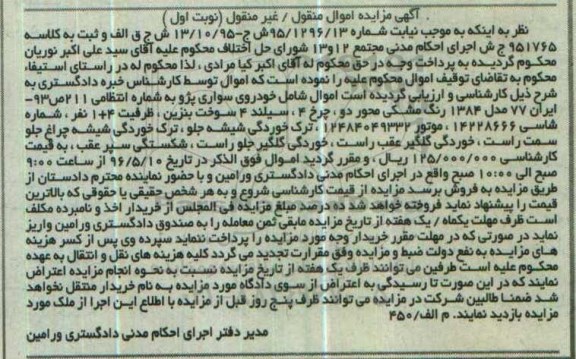 آگهی مزایده اموال منقول / غیر منقول (نوبت اول)
نظر به اینکه به موجب نیابت شماره ۹۵/۱۲۹۶/۱۳ش ج ۹۵-۱۳/۱۰ ش ج ق الف و ثبت به کلاسه
۹۵۱۷۶۵ ج ش اجرای احکام مدنی مجتمع ۱۲و۱۳ شورای حل اختلاف محکوم علیه آقای سید علی اکبر نوریان
محکوم گردیده به پرداخت وجه در حق محکوم له آقای اکبر کیا مرادی ، لذا محکوم له در راستای استیفاء
محکوم به تقاضای توقیف اموال محکوم علیه را نموده است که اموال توسط کارشناس خبره دادگستری به
شرح ذیل کارشناسی و ارزیابی گردیده است اموال شامل خودروی سواری پژو به شماره انتظامی ۲۱۱ص۹۳-
ایران ۷۷ مدل ۱۳۸۴ رنگ مشکی محور دو ، چرخ ۴ ، سیلند ۴ سوخت بنزین ، ظرفیت ۴+۱ نفر ، شماره
شاسی ۱۴۲۲۸۶۶۶ ، موتور ۱۲۴۸۴۰۴۹۳۳۲ ترک خوردگی شیشه جلو ، ترک خوردگی شیشه چراغ جلو
سمت راست ، خوردگی گلگیر عقب راست ، خوردگی گلگیر جلو راست ، شکستگی سپر عقب ، به قیمت
کارشناسی ۱۲۵/۰۰۰/۰۰۰ ریال ، و مقرر گردید اموال فوق الذکر در تاریخ ۹۶/۵/۱۰ از ساعت ۹:۰۰
صبح الی ۱۰:۰۰ صبح واقع در اجرای احکام مدنی دادگستری ورامین و با حضور نماینده محترم دادستان از
طریق مزایده به فروش برسد مزایده از قیمت کارشناسی شروع و به هر شخص حقیقی یا حقوقی که بالاترین
قیمت را پیشنهاد نماید فروخته خواهد شد ده درصد مبلغ مزایده فی المجلس از خریدار اخذ و نامبرده مکلف
است ظرف مهلت یکماه / یک هفته از تاریخ مزایده مابقی ثمن معامله را به صندوق دادگستری ورامین واریز
نماید در صورتی که در مهلت مقرر خریدار وجه مورد مزایده را پرداخت ننماید سپرده وی پس از کسر هزینه
های مزایده به نفع دولت ضبط و مزایده وفق مقرارت تجدید می گردد کلیه هزینه های نقل و انتقال به عهده
محکوم علیه است طرفین می توانند ظرف یک هفته از تاریخ مزایده نسبت به نحوه انجام مزایده اعتراض
نمایند که در این صورت تا رسیدگی به اعتراض از سوی دادگاه مورد مزایده به نام خریدار منتقل نخواهد
شد ضمنا طالبین شرکت در مزایده می توانند ظرف پنج روز قبل از مزایده با اطلاع این اجرا از ملک مورد
مزایده بازدید نمایند. م الف/۴۵۰
مدیر دفتر اجرای احکام مدنی دادگستری ورامین